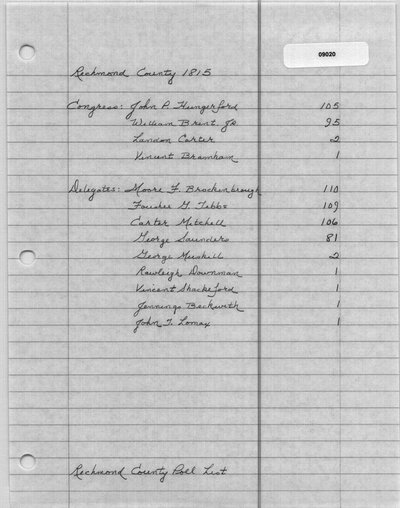 09020
Richmond County 1815
Congress: John P. Hungerford 105
William Brent Jr. 95
Landon Carter 2
Vincent Bramham 1
Delegates: Moore F. Brockenbrough 110
Foushee G. Tebbs 109
Carter Mitchell 106
George Saunders 81
George 2
Rawleigh Downman 1
Vincent Shackelford 1
Jennings Beckwith 1
John T. Lomax 1
Richmond County Poll List